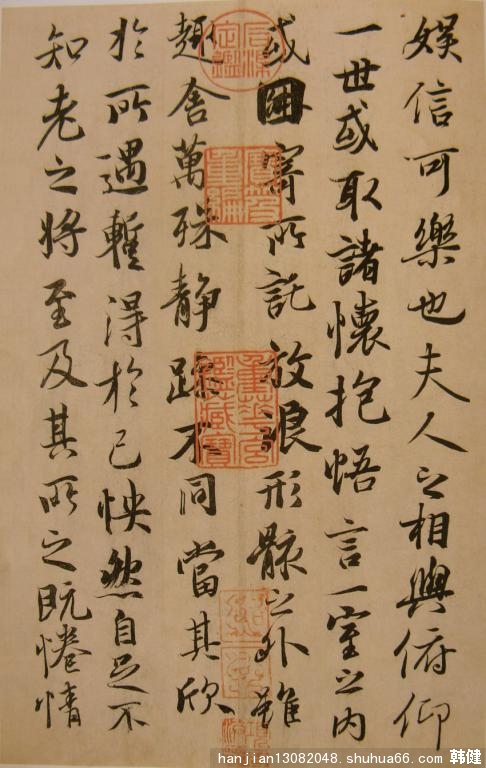 娱信可樂也夫人之相與俯仰
一世或取諸懷抱悟言一室之内
或因寄所託放浪形骸之外雖
趣舍萬殊静躁不同當其欣
於所遇暫得於己怏然自足不
知老之將至及其所之既惓情
石渠定鑑
寶笈重編
hanjian13082048.shuhua66.com 韩健